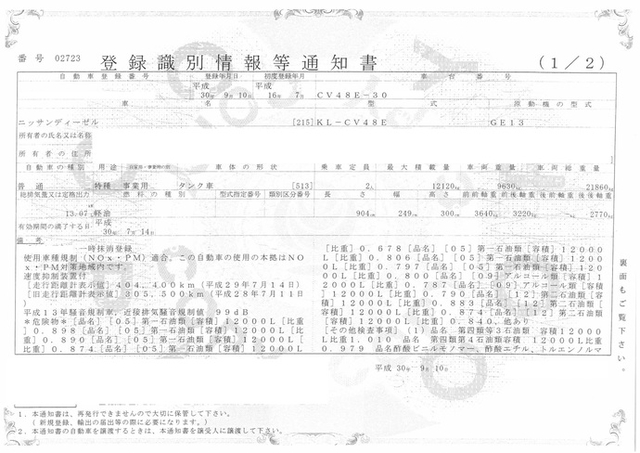 番号 02723
登録識別情報等通知書
(1/2)
自動車登録番号 登録年月日 初度登録年月 車台番号
平成 平成
30年 9月 10日 16年 7月 CV48E-30
車名 型式 原動機の型式
ニッサンディーゼル [215] KL-CV48E GE13
所有者の氏名又は名称
所有者の住所
自動車の種別 用途 自家用・事業用の別 車体の形状 乗車定員 最大積載量 車両重量 車両総重量
普通 特種 事業用 タンク車 [513] 2人 12120kg 9630kg 21860kg
総排気量又は定格出力 燃料の種別 型式指定番号 類別区分番号 長さ 幅 高さ 前前軸重 前後軸重 後前軸重 後後軸重
13.07L 軽油 904cm 249cm 300cm 3640kg 3220kg 2770kg
有効期間の満了する日
平成
30年 7月 14日
備考
一時抹消登録
使用車種規制(NOx・PM)適合、この自動車の使用の本拠はNO
x・PM対策地域内です。
速度抑制装置付
[走行距離計表示値] 404,400km(平成29年7月14日)
[旧走行距離計表示値] 305,500km(平成28年7月11日)
平成13年騒音規制車、近接排気騒音規制値 99dB
*危険物*[品名][05]第一石油類[容積]12000L[比重]
0.898[品名][05]第一石油類[容積]12000L[比
重]0.890[品名][05]第一石油類[容積]12000L[
比重]0.874[品名][05]第一石油類[容積]12000L
[比重]0.678[品名][05]第一石油類[容積]12000
L[比重]0.806[品名][05]第一石油類[容積]1200
0L[比重]0.797[品名][05]第一石油類[容積]120
00L[比重]0.787[品名][09]アルコール類[容積]1
2000L[比重]0.790[品名][12]第二石油類[容積]
12000L[比重]0.883[品名][12]第二石油類[容積
]12000L[比重]0.874[品名][12]第二石油類[容
積]12000L[比重]0.840、他あり
[その他検査事項](1)品名 第四類等3石油類12000L
比重1.010 品名 第四類第4石油類12000L比重
0.979 品名酢酸ビニルモノマー、酢酸エチル、トルエンノルマ
平成 30年 9月 10日
裏面もご覧下さい。
1.本通知書は、再発行できませんので大切に保管して下さい。
(新規登録、輸出の届出等の際に必要になります。)
2.本通知書の自動車を譲渡するときは、本通知書を譲受人に譲渡して下さい。